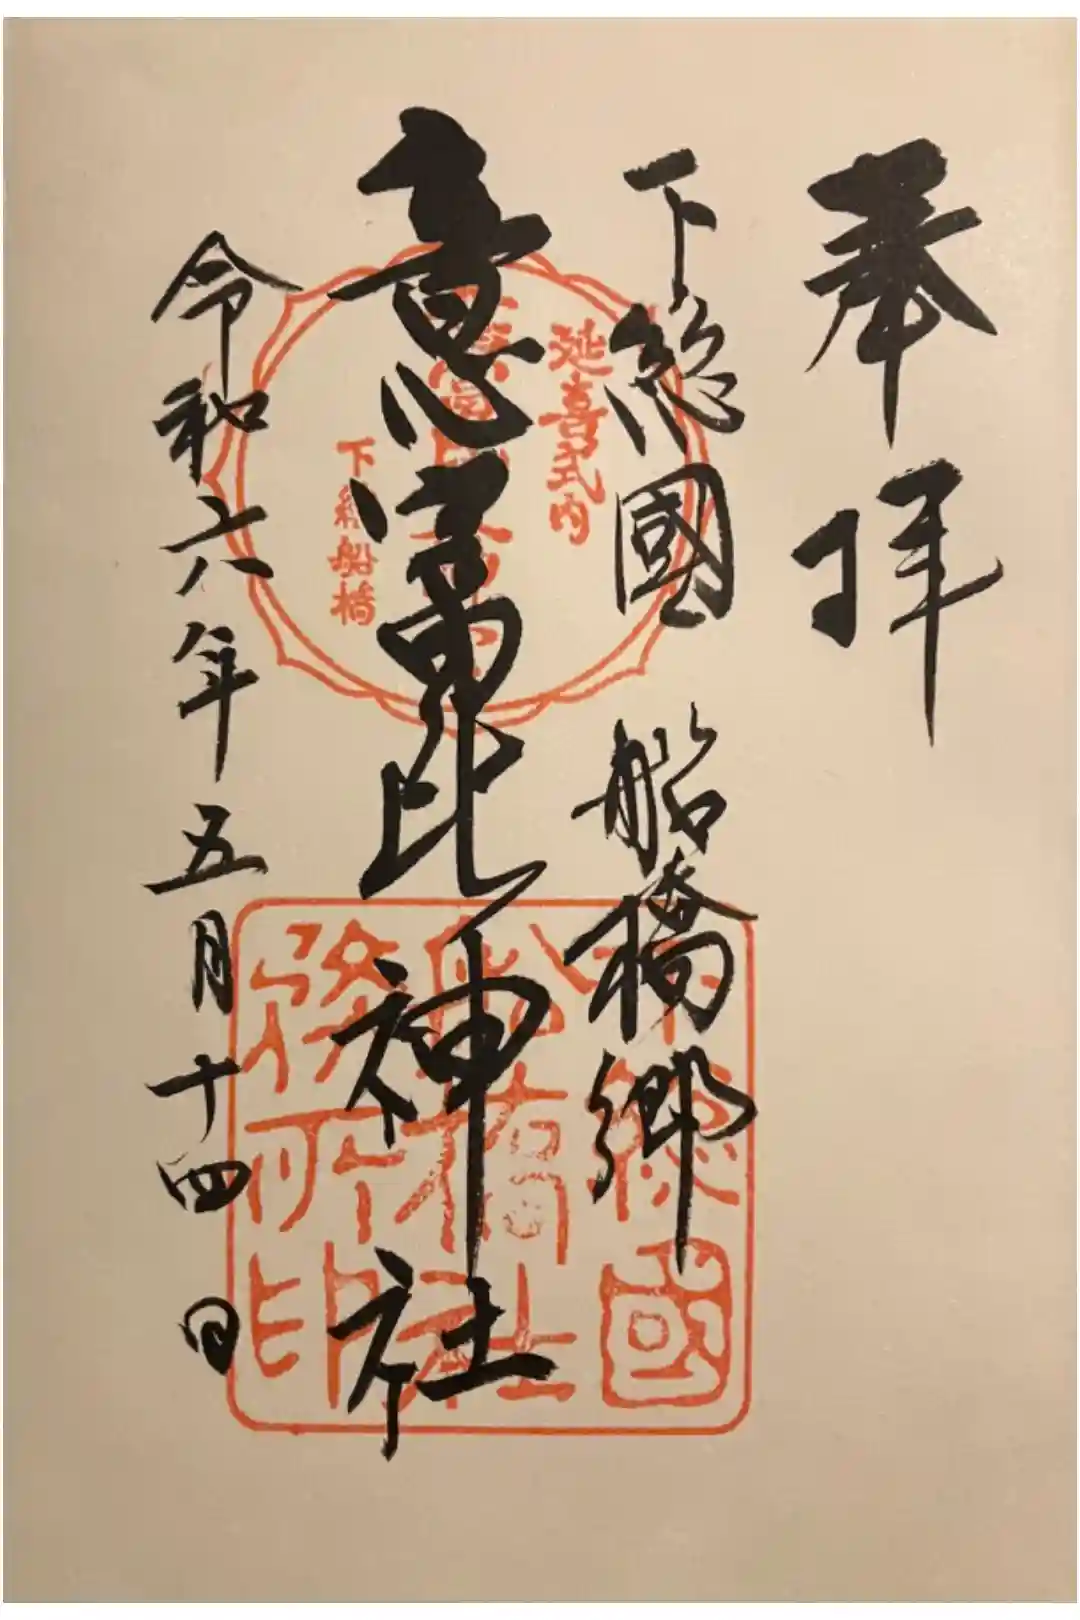 奉拝
下総國 船橋郷
意富比神社
令和六年五月十四日
延喜式内
下総船橋
下總國
船橋社
務所印